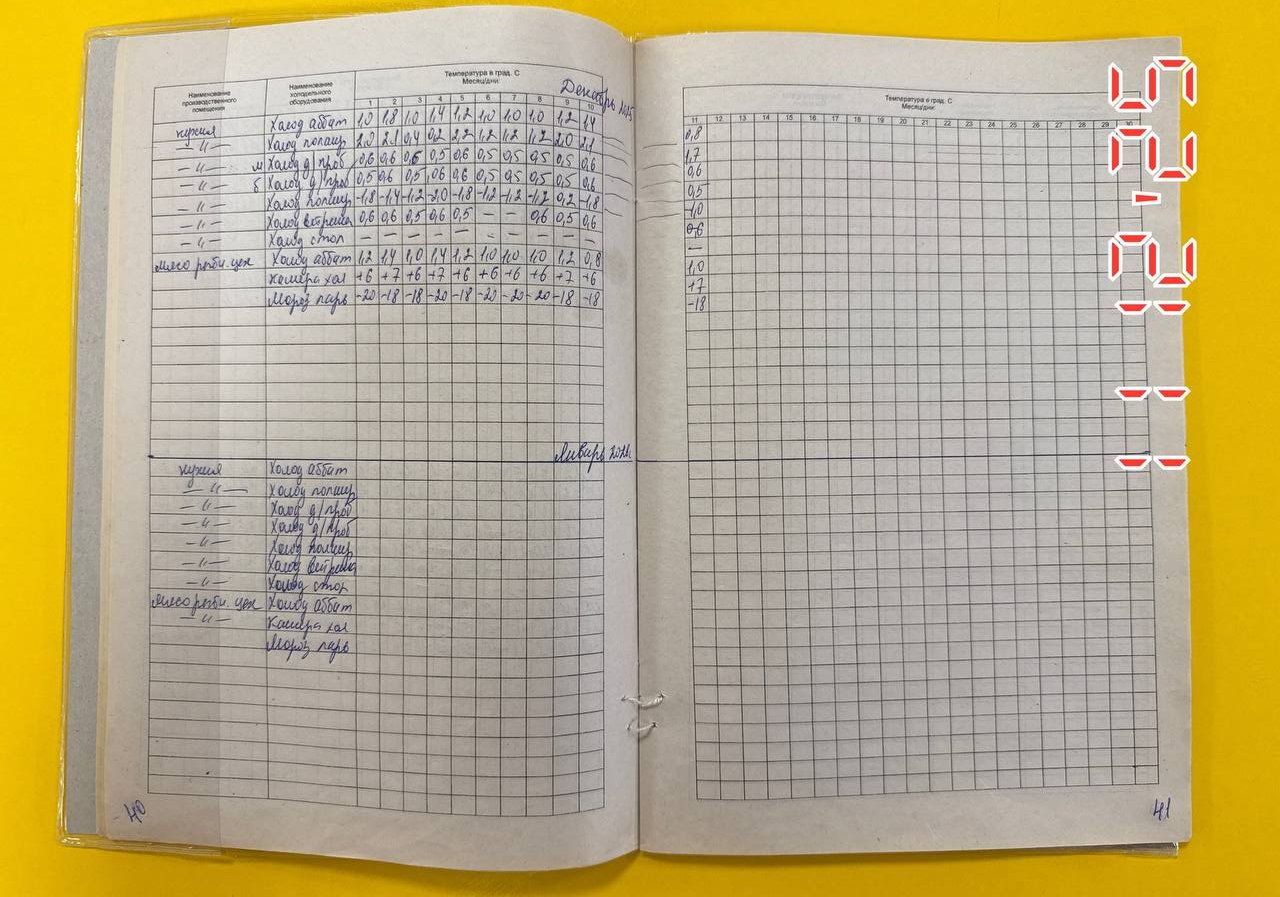 Наименование производственного помещения
Наименование холодильного оборудования
Температура в град. С
Месяц/дни:
Декабрь 2025
1 2 3 4 5 6 7 8 9 10
кухня Холод аббат 1,0 1,8 1,0 1,4 1,2 1,0 1,0 1,0 1,2 1,4
— " — Холод полаир 2,0 2,1 0,4 0,2 2,2 1,2 1,2 1,2 2,0 2,1
— " — м Холод д/проб 0,6 0,6 0,6 0,5 0,6 0,5 0,5 0,5 0,5 0,6
— " — б Холод д/проб 0,5 0,6 0,5 0,6 0,6 0,5 0,5 0,5 0,5 0,6
— " — Холод полаир -1,8 -1,4 -1,2 -2,0 -1,8 -1,2 -1,2 -1,2 0,2 -1,8
— " — Холод витрина 0,6 0,6 0,5 0,6 0,5 — — 0,6 0,5 0,6
— " — Холод стол — — — — — — — — — —
мясо рыбн. цех Холод аббат 1,2 1,4 1,0 1,4 1,2 1,0 1,0 1,0 1,2 0,8
Камера хол +6 +7 +6 +7 +6 +6 +6 +6 +7 +6
Мороз ларь -20 -18 -18 -20 -18 -20 -20 -20 -18 -18
Январь 2026
кухня Холод аббат
— " — Холод полаир
— " — Холод д/проб
— " — Холод д/проб
— " — Холод полаир
— " — Холод витрина
— " — Холод стол
мясо рыбн. цех Холод аббат
— " — Камера хол
Мороз ларь
40
Температура в град. С
Месяц/дни:
11 12 13 14 15 16 17 18 19 20 21 22 23 24 25 26 27 28 29 30
0,8
1,7
0,6
0,5
-1,0
0,6
—
1,0
+7
-18
41
11 12 '25